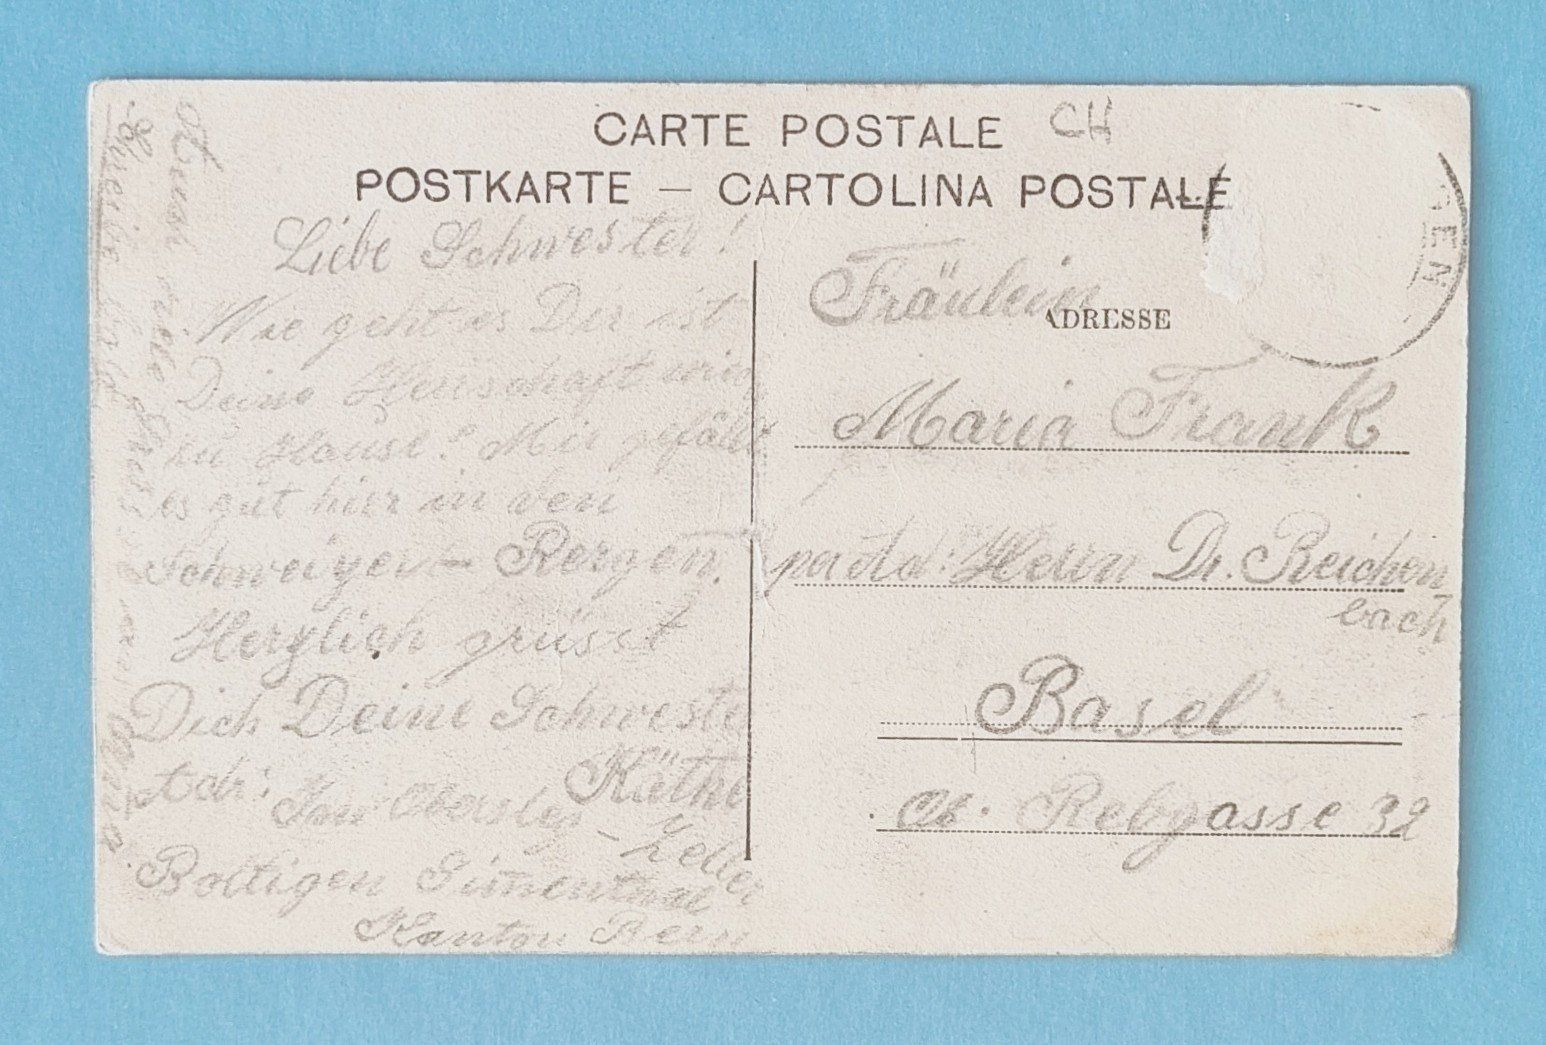 CARTE POSTALE CH
POSTKARTE — CARTOLINA POSTALE
Liebe Schwester!
Wie geht es Dir ist
Deine Herrschaft wie
zu Hause? Mir gefällt
es gut hier in den
Schweizer- Bergen.
Herzlich grüsst
Dich Deine Schweste
Käthe
Adr:
Zeller
Boltigen Simmental
Kanton Bern
Schreibe bald
Fräulein
ADRESSE
Maria Frank
per Ad: Herrn Dr. Reichen
bach
Basel
Ob. Rebgasse 32
GEN